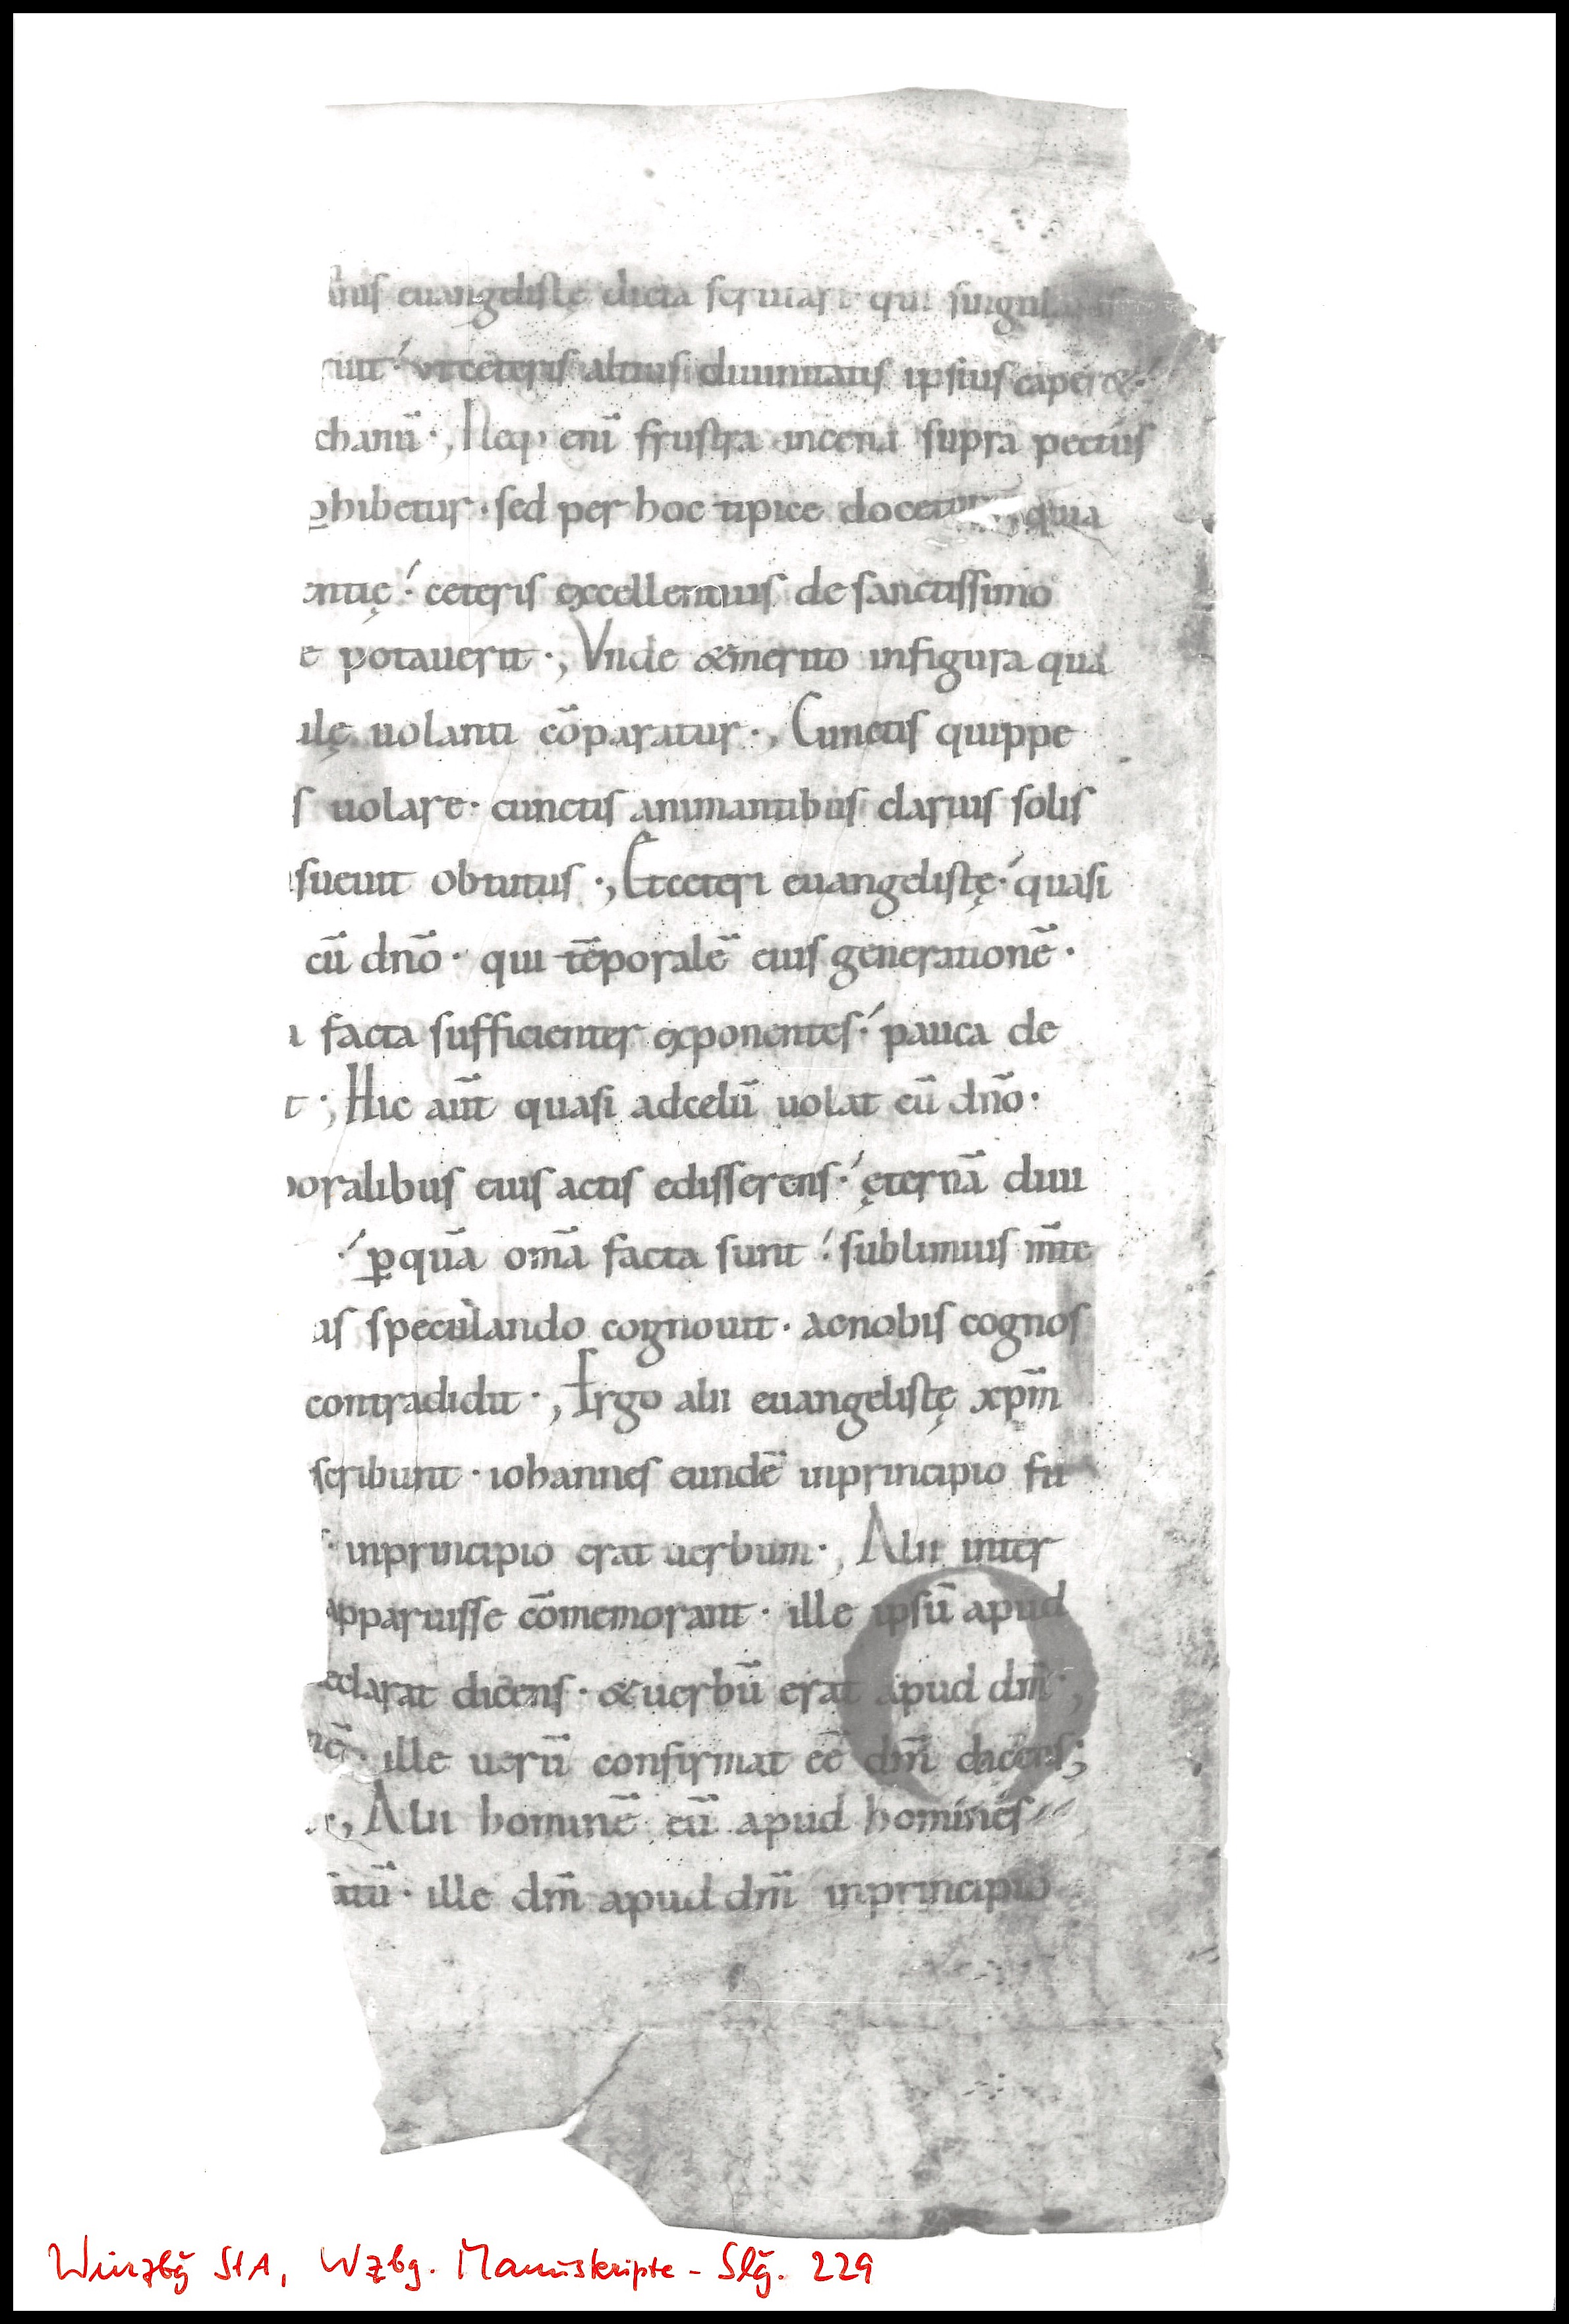 nis euangelistę dicta scrutari qui singularis
ruit · ut ceteris altius diuinitatis ipsius caperet ·
chanū ·, Neq; enī frustra incena supra pectus
ꝑhibetur · sed per hoc tipice docetur quia
entię · ceteris excellentius de sanctissimo
e potauerit ·, Vnde & merito infigura qua
ilę uolanti cōparatur ·, Cunctis quippe
s uolare · cunctis animantibus clarius solis
sueuit obtutus ·, Et ceteri euangelistę · quasi
cū dn̄o · qui tēporalē eius generationē ·
a facta sufficienter exponentes · pauca de
t ·, Hic aūt quasi adcelū uolat cū dn̄o ·
poralibus eius actis edisserens · ęternā diui
· ꝑquā om̄a facta sunt · sublimius m̄te
as speculando cognouit · acnobis cognos
contradidit ·, Ergo alii euangelistę xpm̄
scribunt · iohannes eundē inprincipio fu
· inprincipio erat uerbum ·, Alii inter
apparuisse cōmemorant · ille ipsū apud
eclarat dicens · & uerbū erat apud dm̄ ·,
ille uerū confirmat eē dm̄ dicens;
·, Alii hominē eū apud homines
atū · ille dm̄ apud dm̄ inprincipio
Würzbg StA, Wzbg. Manuskripte - Slg. 229